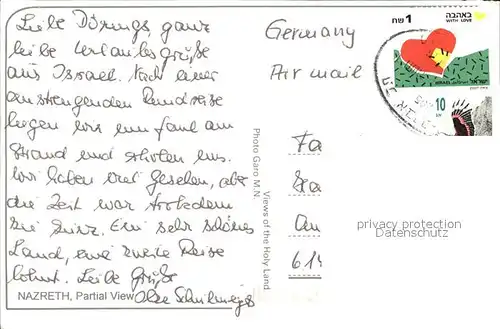 Liebe Dörings, ganz
liebe Urlaubsgrüße
aus Israel. Nach einer
anstrengenden Rundreise
liegen wir nun faul am
Strand und erholen uns.
Wir haben viel gesehen, aber
die Zeit war trotzdem
zu kurz. Ein sehr schönes
Land, eine zweite Reise
lohnt. Liebe Grüße
NAZRETH, Partial View
Photo Garo M.N.
Views of the Holy Land
Germany
Air mail
1 שח
באהבה
WITH LOVE
ISRAEL
ישראל
10
Fa
An
614
privacy protection
watermark